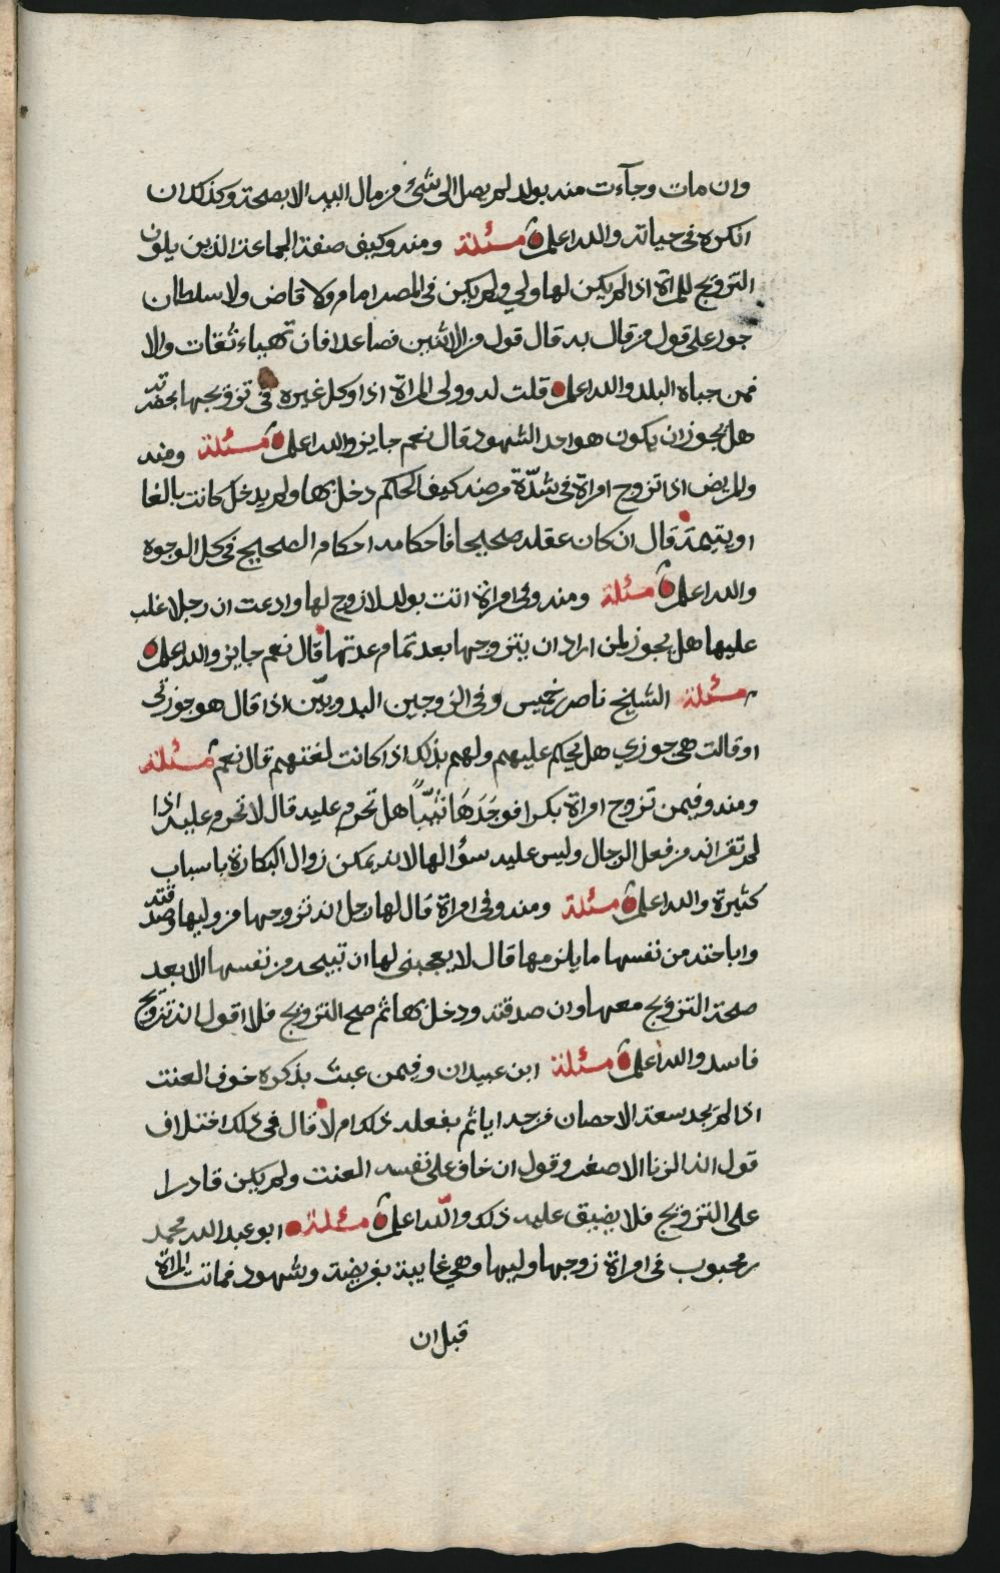 وان مات وجآءت منه بولد لم يصل الى شئ من مال اليه الا بصحة وكذلك ان
انكره في حياته والله اعلم مسئلة ومنه وكيف صفة الجماعة الذين يلون
التزويج للمراة اذا لم يكن لها ولي ولم يكن في المصر امام ولا قاض ولا سلطان
جور على قول من قال به قال قول من الاثنين فصاعدا فان تهياء ثقات والا
فمن جباه البلد والله اعلم قلت له وولى المراة اذا وكل غيره في تزويجها بحضرته
هل يجوز ان يكون هو احد الشهود قال نعم جايز والله اعلم مسئلة ومنه
والمريض اذا تزوج امراة في شدّة مرضه كيف الحكم دخل بها ولم يدخل كانت بالغا
او يتيمة قال ان كان عقله صحيحا فاحكامه احكام الصحيح في كل الوجوه
والله اعلم مسئلة ومنه وفي امراة اتت بولد لا زوج لها وادعت ان رجلا غلب
عليها هل يجوز لمن اراد ان يتزوجها بعد تمام عدتها قال نعم جايز والله اعلم
مسئلة الشيخ ناصر بن خميس وفي الزوجين البدويّين اذا قال هو جوزتي
او قالت هي جوزي هل يحكم عليهم ولهم بذلك اذا كانت لغتهم قال نعم مسئلة
ومنه وفيمن تزوج امراة بكرا فوجَدَهَا ثيّباً هل تحرم عليه قال لا تحرم عليه اذا
لم تقر انه من فعل الرجال وليس عليه سؤالها لانه يمكن زوال البكارة باسباب
كثيرة والله اعلم مسئلة ومنه وفي امراة قال لها رجل انه تزوجها من وليها وصدقته
واباحته من نفسها ما يلزمها قال لا يعجبني لها ان تبيحه من نفسها الا بعد
صحة التزويج معها وان صدقته ودخل بها ثم صح التزويج فلا اقول انه تزويج
فاسد والله اعلم مسئلة ابن عبيدان وفيمن عبث بذكره خوف العنت
اذا لم يجد سعة الاحصان من حد اياثم بفعله ذلك ام لا قال في ذلك اختلاف
قول انه الزنا الاصغر وقول ان خاف على نفسه العنت ولم يكن قادرا
على التزويج فلا يضيق عليه ذلك واللّه اعلم مسئلة ابو عبد الله محمد
بن محبوب في امراة زوجها وليها وهي غايبة بفريضة وشهود فماتت المراة
قبل ان